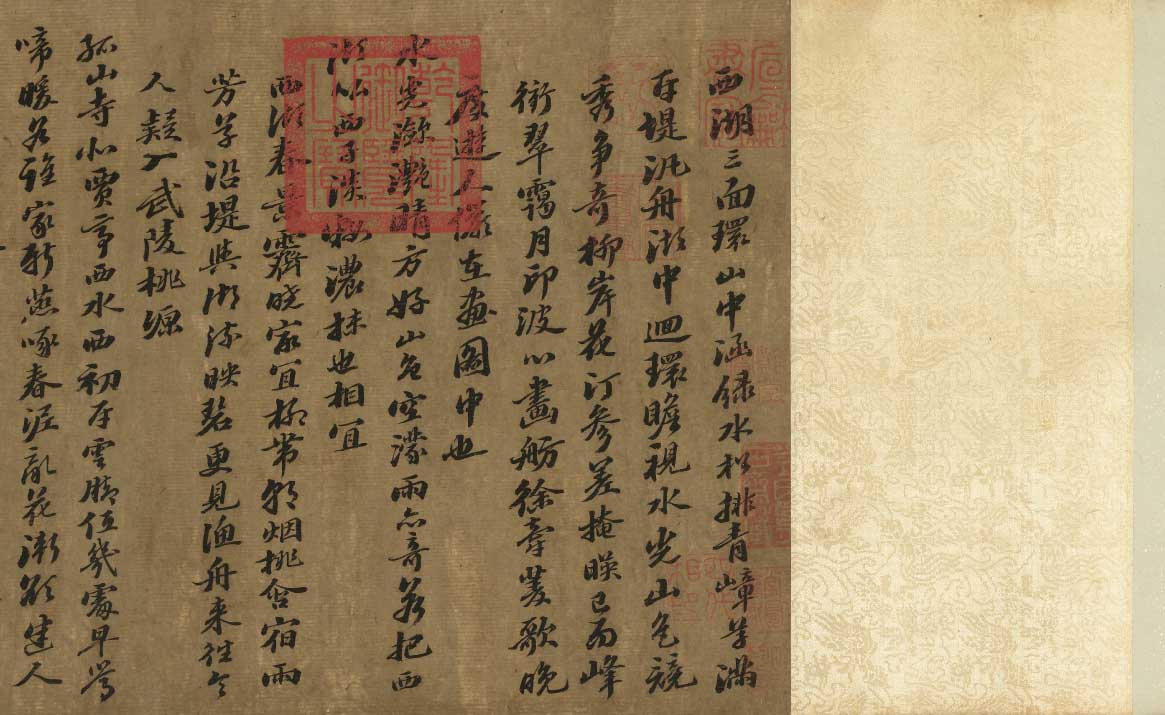 西湖三面環山中涵緑水松排青嶂草滿
平堤汎舟湖中迴環瞻視水光山色競
秀爭奇柳岸花汀參差掩暎已而峰
銜翠靄月印波心畫舫徐牽菱歌晚
度遊人儼在畫圖中也
水光瀲灧晴方好山色空濛雨亦奇若把西
湖比西子淡粧濃抹也相宜
西湖春景霽曉冣宜柳帶朝烟桃含宿雨
芳草沿堤與湖流映碧更見漁舟来往令
人疑入武陵桃源
孤山寺北賈亭西水面初平雲脚低幾處早鶯
啼暖谷誰家新燕啄春泥亂花漸欲迷人
乾隆御覽之寶